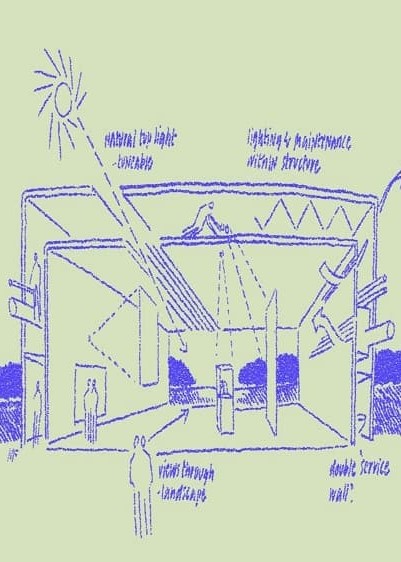 natural top light
-tuneable
lighting & maintenance
within structure
views through
-landscape
double service
wall?
NF